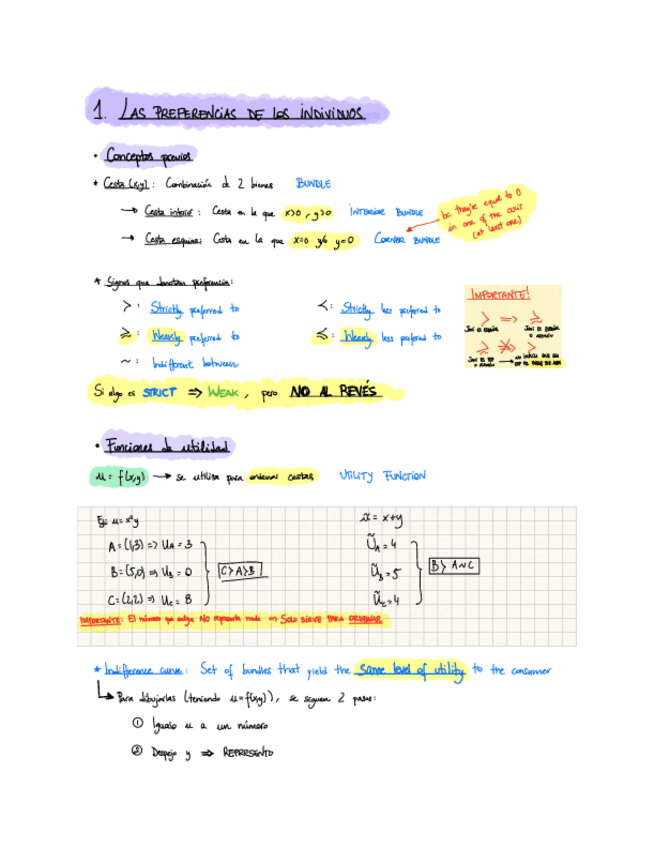 1. LAS PREFERENCIAS DE LOS INDIVIDUOS
• Conceptos previos
* Cesta (x,y): Combinación de 2 bienes BUNDLE
→ Cesta interior: Cesta en la que x>0, y>0 INTERIOR BUNDLE
→ Cesta esquina: Cesta en la que x=0 y/o y=0 CORNER BUNDLE
equal to 0
in one of the axis
(at least one)
* Signos que denotan preferencia:
≻: Strictly preferred to ≺: Strictly less preferred to
≿: Weakly preferred to ≾: Weakly less preferred to
~: Indifferent between
IMPORTANTE!
≻ ⇒ ≿
≿ ⇏ ≻
Si algo es STRICT ⇒ WEAK, pero NO AL REVÉS
• Funciones de utilidad
u = f(x,y) → se utiliza para ordenar cestas UTILITY FUNCTION
Ej: u = x²y ũ = x+y
A = (1,3) => U_A = 3 Ũ_A = 4
B = (5,0) => U_B = 0 Ũ_B = 5
C = (2,2) => U_C = 8 Ũ_C = 4
C≻A≻B B≻A~C
IMPORTANTE: El número que salga NO representa nada => SOLO SIRVE PARA ORDENAR
* Indifference curve: Set of bundles that yield the same level of utility to the consumer
↳ Para dibujarlas (teniendo u=f(x,y)), se siguen 2 pasos:
① Igualo u a un número
② Despejo y ⇒ REPRESENTO